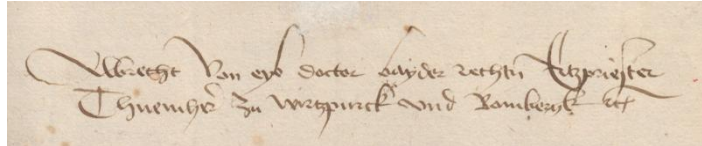 Albrecht Von eyb doctor bayder rechtn Ertzpriester
Thuemher zu wirtzpurck und Bamberck etc